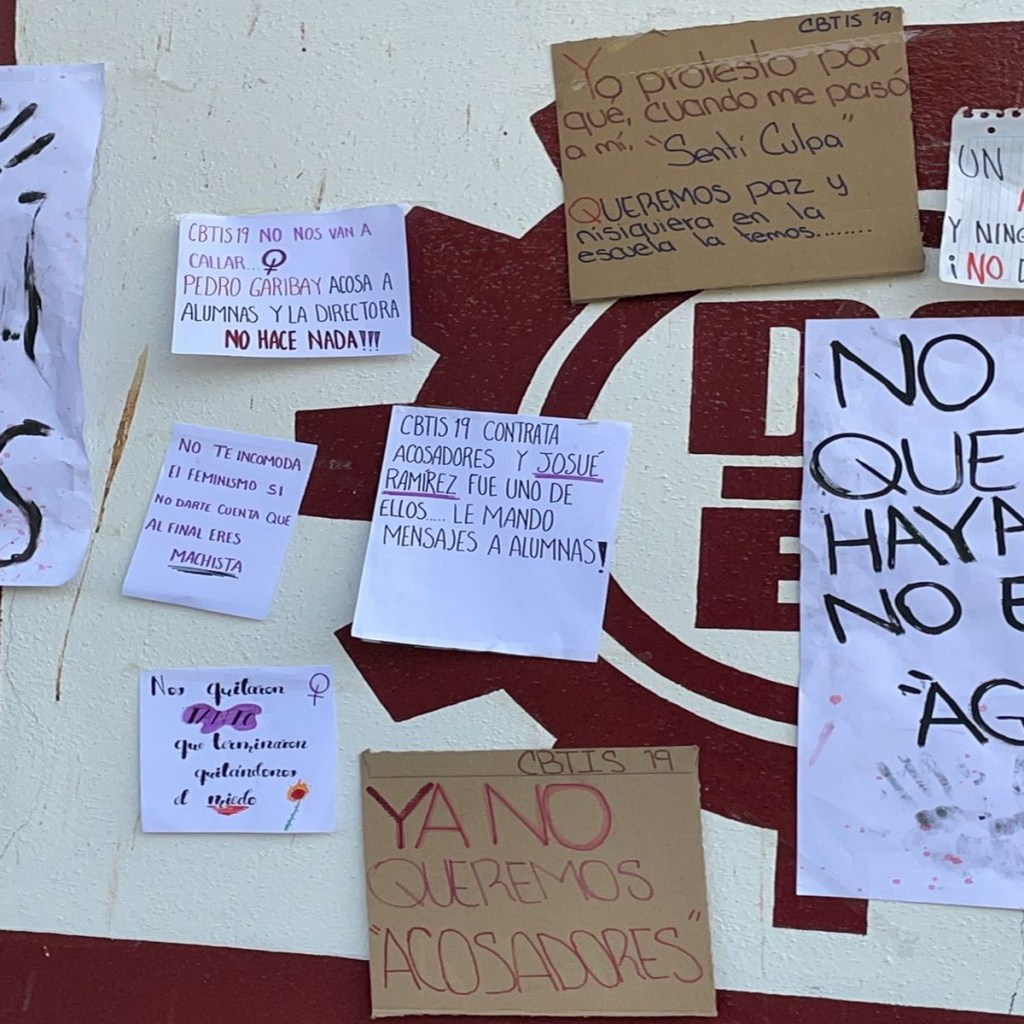 CBTIS 19
Yo protesto por
qué, cuando me pasó
a mi, "Sentí Culpa"
QUEREMOS paz y
nisiquiera en la
escuela la temos.........
UN
Y NING
¡NO D
CBTIS19 NO NOS VAN A
CALLAR...
PEDRO GARIBAY ACOSA A
ALUMNAS Y LA DIRECTORA
NO HACE NADA!!!
NO TE INCOMODA
El FEMINISMO SI
NO DARTE CUENTA QUE
AL FINAL ERES
MACHISTA
CBTIS 19 CONTRATA
ACOSADORES Y JOSUÉ
RAMIREZ FUE UNO DE
ELLOS..... LE MANDO
MENSAJES A ALUMNAS!
NO
QUE
HAYA
NO E
"AG
Nos quitaron
TANTO
que terminaron
quitándonos
el miedo
CBTIS 19
YA NO
QUEREMOS
"ACOSADORES"
S